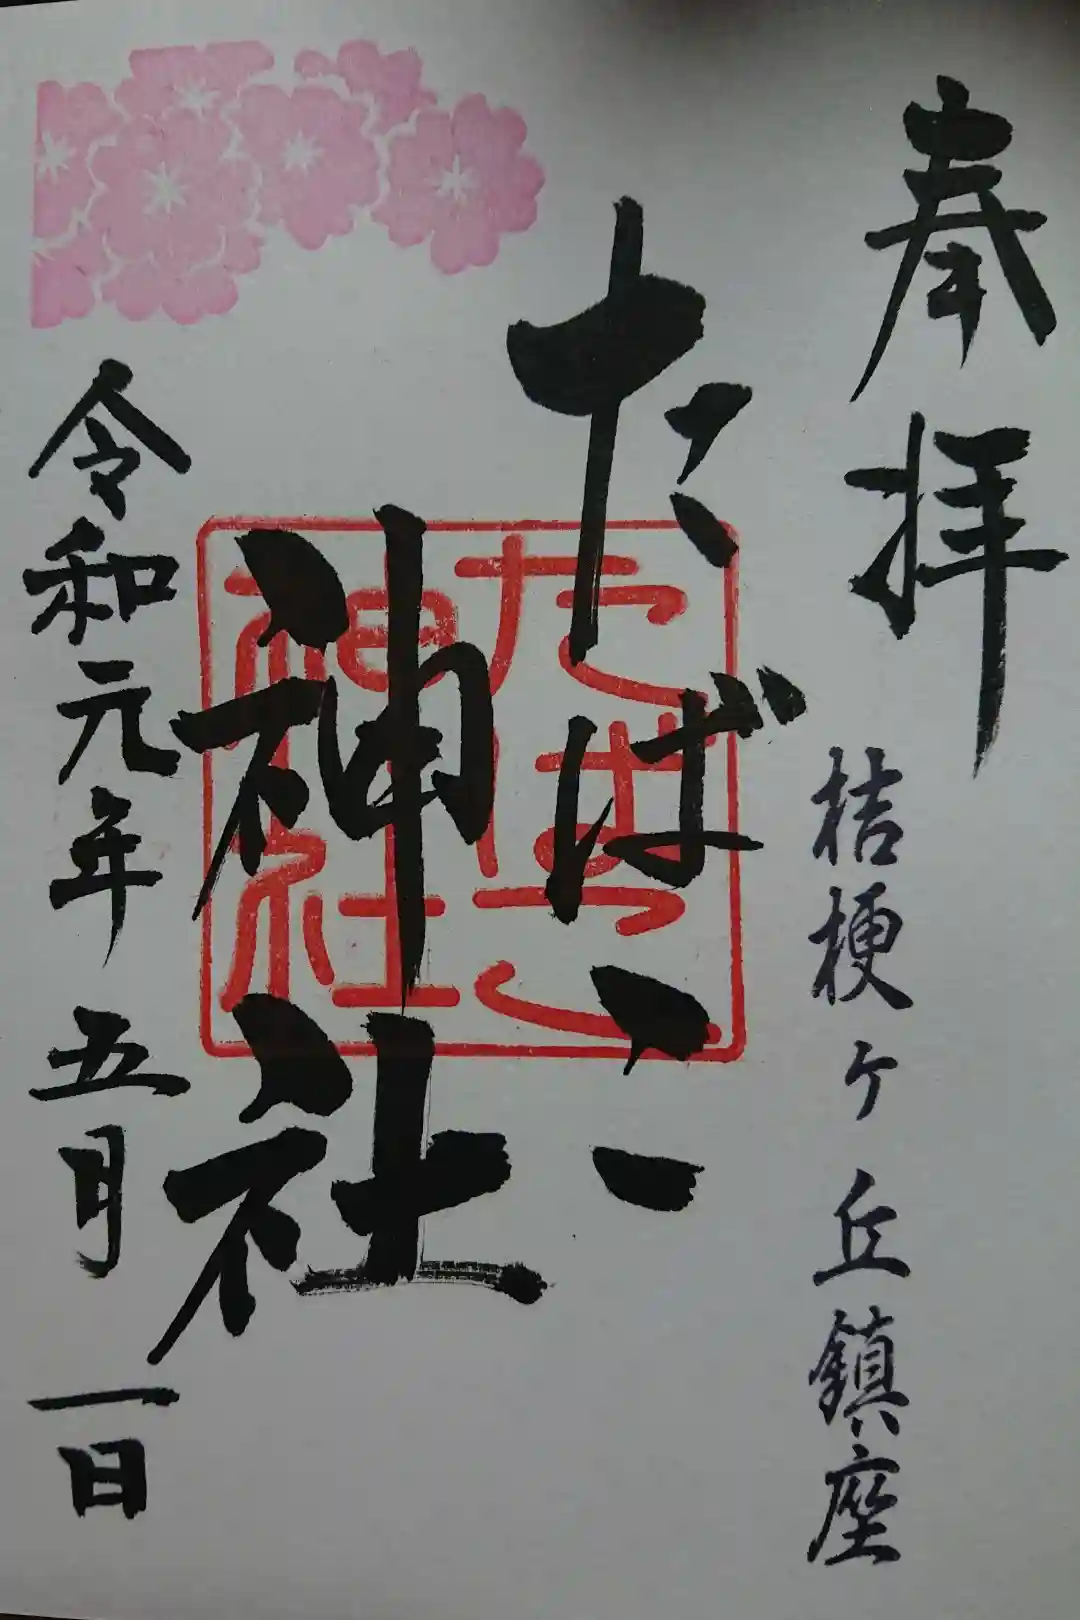 奉拝
桔梗ケ丘鎮座
たばこ
神社
たばこ
神社
令和元年五月一日